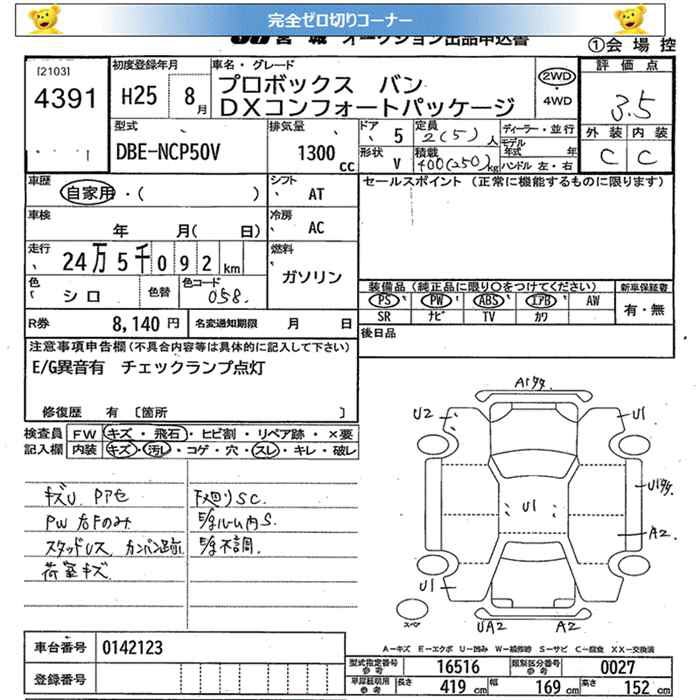 完全ゼロ切りコーナー
JU宮城 オークション出品申込書
①会場控
[2103]
4391
初度登録年月
H25 8月
車名・グレード
プロボックス バン
DXコンフォートパッケージ
2WD
・
4WD
評価点
3.5
外装 内装
C C
型式
DBE-NCP50V
排気量
1300 cc
ドア
5
形状
V
定員
2(5)人
積載
400(250)kg
ディーラー・並行
モデル年式 年
ハンドル 左・右
車歴
自家用・( )
シフト
AT
セールスポイント (正常に機能するものに限ります)
車検
年 月( 日)
冷房
AC
走行
24万5千092km
燃料
ガソリン
色
シロ
色替
色コード
058
装備品 (純正品に限り○をつけてください)
PS PW ABS エアB AW
SR ナビ TV カワ
新車保証書
有・無
R券
8,140円
名変通知期限 月 日
後日品
注意事項申告欄(不具合内容等は具体的に記入して下さい)
E/G異音有 チェックランプ点灯
修復歴 有 [箇所 ]
検査員
記入欄
FW キズ・飛石・ヒビ割・リペア跡・×要
内装 キズ・汚レ・コゲ・穴・スレ・キレ・破レ
キズU PP色
PW 右Fのみ
スタッドレス カンバン跡
荷室キズ
下廻りSC
E/gルーム内S
E/g不調
A1タタ
U2
U1
U1
U1タタ
A2
U1
スペア
UA2
A2
A－キズ E－エクボ U－凹み W－補修跡 S－サビ C－腐食 XX－交換済
車台番号
0142123
登録番号
型式指定番号
参考
16516
類別区分番号
参考
0027
車庫証明用
参考
長さ 419cm 幅 169cm 高さ 152cm